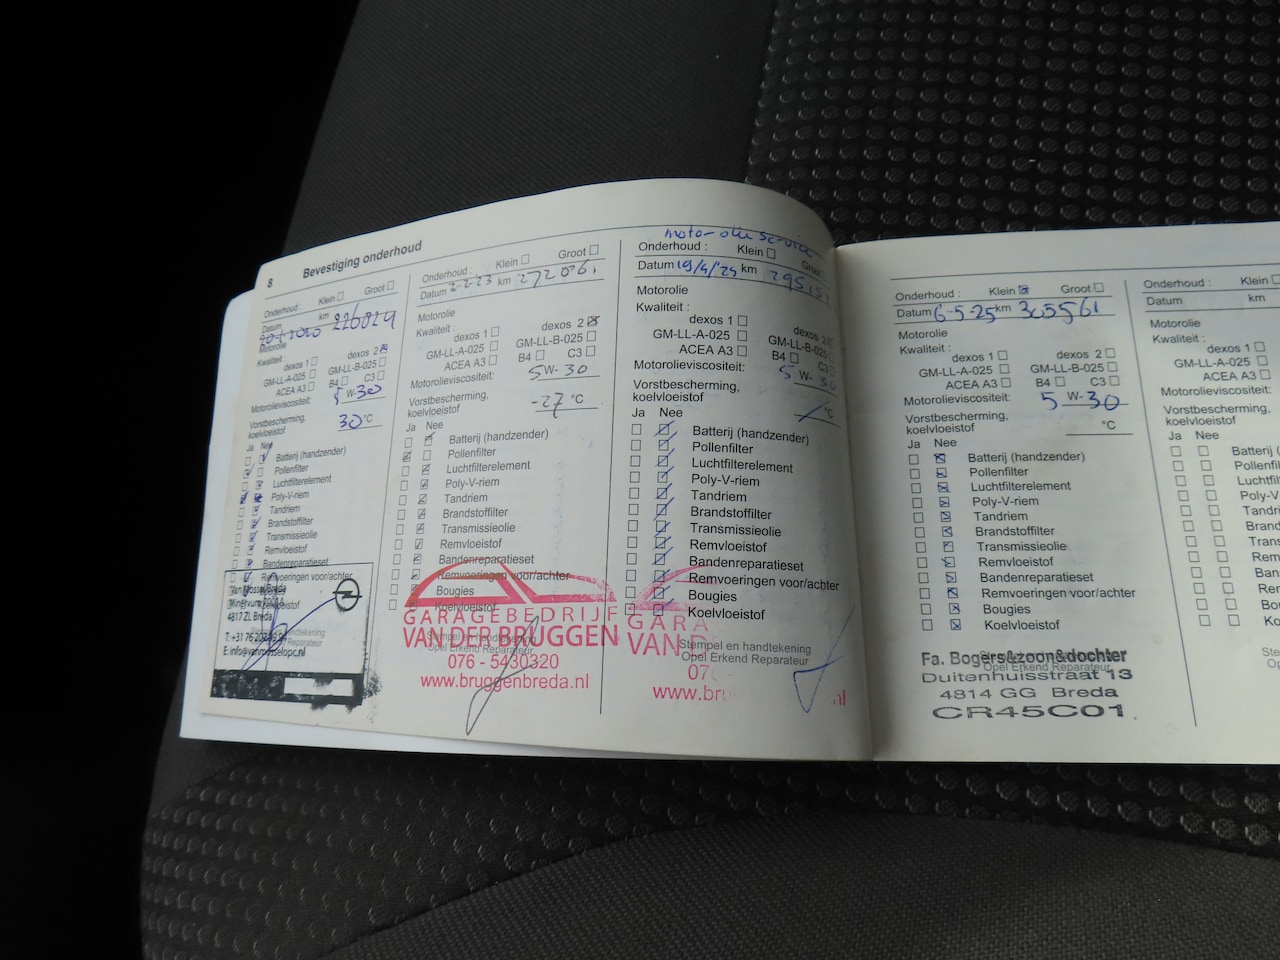 8 Bevestiging onderhoud
Onderhoud : Klein Groot
Datum 2020 km 226824
Motorolie
Kwaliteit : dexos 1 dexos 2
GM-LL-A-025 GM-LL-B-025
ACEA A3 B4 C3
Motorolieviscositeit: 5 W-30
Vorstbescherming,
koelvloeistof 30 °C
Ja Nee
Batterij (handzender)
Pollenfilter
Luchtfilterelement
Poly-V-riem
Tandriem
Brandstoffilter
Transmissieolie
Remvloeistof
Bandenreparatieset
Remvoeringen voor/achter
Bougies
Koelvloeistof
Van Mossel Breda
4817 ZL Breda
Stempel en handtekening
Opel Erkend Reparateur
Onderhoud : Klein Groot
Datum 2-2-23 km 272061
Motorolie
Kwaliteit : dexos 1 dexos 2
GM-LL-A-025 GM-LL-B-025
ACEA A3 B4 C3
Motorolieviscositeit: 5 W- 30
Vorstbescherming,
koelvloeistof -27 °C
Ja Nee
Batterij (handzender)
Pollenfilter
Luchtfilterelement
Poly-V-riem
Tandriem
Brandstoffilter
Transmissieolie
Remvloeistof
Bandenreparatieset
Remvoeringen voor/achter
Bougies
Koelvloeistof
GARAGEBEDRIJF
VAN DER BRUGGEN
Stempel en handtekening
Opel Erkend Reparateur
076 - 5430320
www.bruggenbreda.nl
motor olie service
Onderhoud : Klein Groot
Datum 19/4/24 km
Motorolie
Kwaliteit : dexos 1 dexos 2
GM-LL-A-025 GM-LL-B-025
ACEA A3 B4 C3
Motorolieviscositeit: 5 W- 30
Vorstbescherming,
koelvloeistof / °C
Ja Nee
Batterij (handzender)
Pollenfilter
Luchtfilterelement
Poly-V-riem
Tandriem
Brandstoffilter
Transmissieolie
Remvloeistof
Bandenreparatieset
Remvoeringen voor/achter
Bougies
Koelvloeistof
GARA
VAN D
Stempel en handtekening
Opel Erkend Reparateur
07
www.bru .nl
Onderhoud : Klein Groot
Datum 6-5-25 km 305561
Motorolie
Kwaliteit : dexos 1 dexos 2
GM-LL-A-025 GM-LL-B-025
ACEA A3 B4 C3
Motorolieviscositeit: 5 W-30
Vorstbescherming,
koelvloeistof °C
Ja Nee
Batterij (handzender)
Pollenfilter
Luchtfilterelement
Poly-V-riem
Tandriem
Brandstoffilter
Transmissieolie
Remvloeistof
Bandenreparatieset
Remvoeringen voor/achter
Bougies
Koelvloeistof
Fa. Bogers&zoon&dochter
Opel Erkend Reparateur
Duitenhuisstraat 13
4814 GG Breda
CR45C01
Onderhoud : Klein
Datum km
Motorolie
Kwaliteit :
dexos 1
GM-LL-A-025
ACEA A3
Motorolieviscositeit:
Vorstbescherming,
koelvloeistof
Ja Nee
Batterij (
Pollenfil
Luchtfil
Poly-V-
Tandri
Brand
Transm
Remv
Band
Rem
Bou
Ko
Ste
Opel